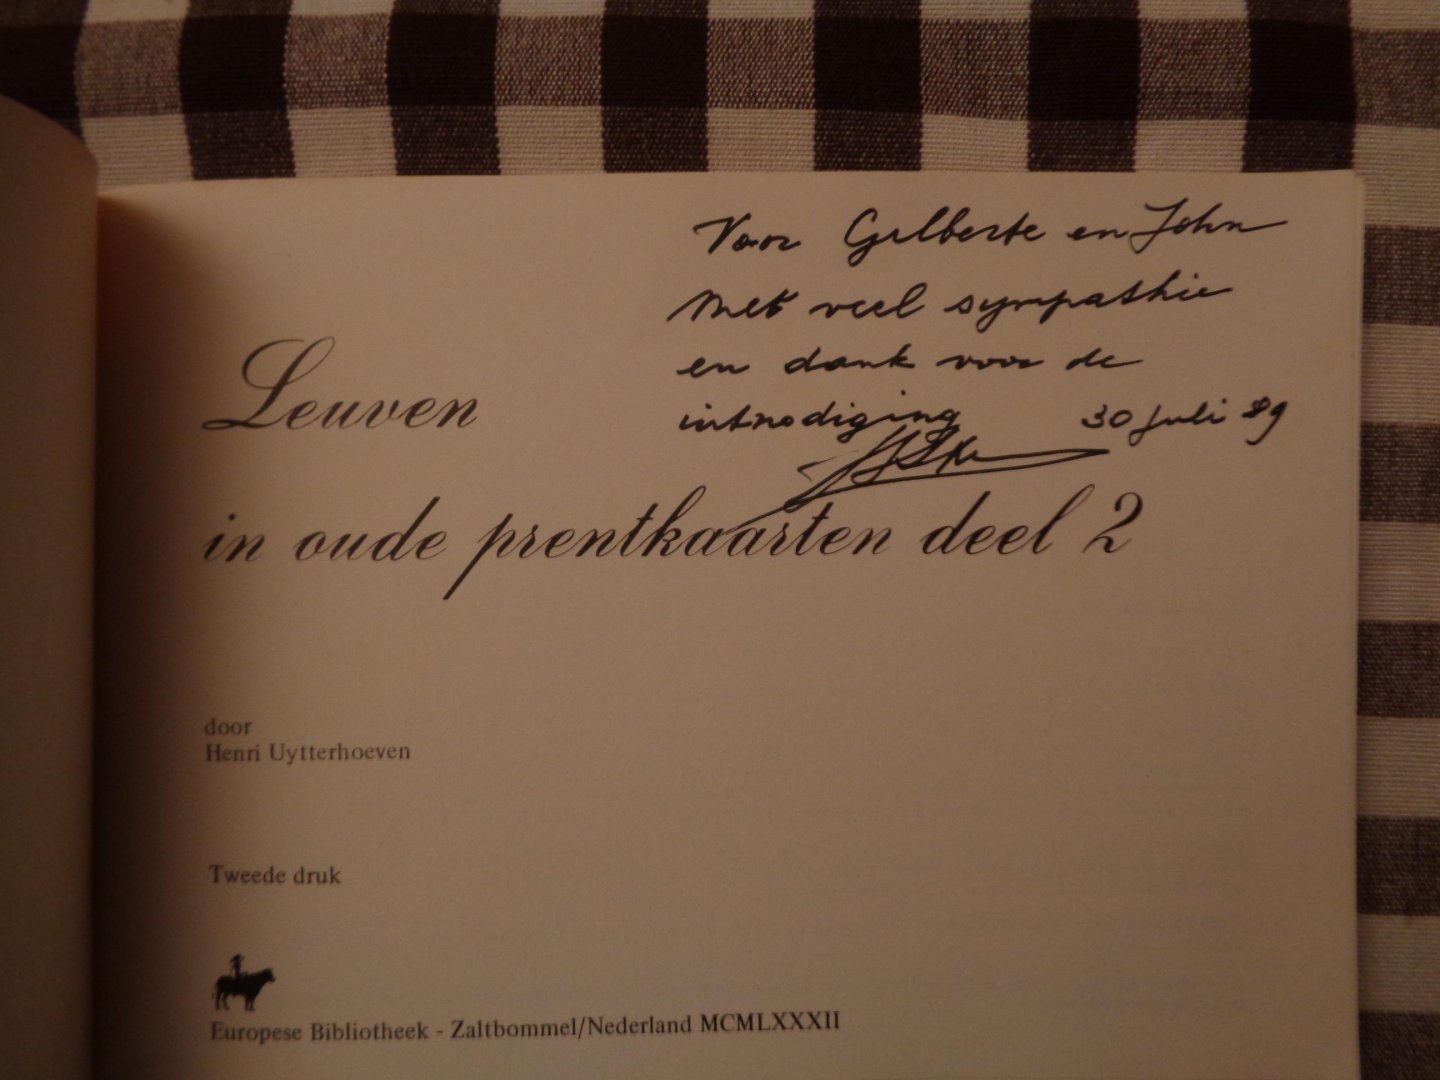 Voor Gilberte en John
Met veel sympathie
en dank voor de
uitnodiging 30 juli 89
Leuven
in oude prentkaarten deel 2
door
Henri Uytterhoeven
Tweede druk
Europese Bibliotheek - Zaltbommel/Nederland MCMLXXXII